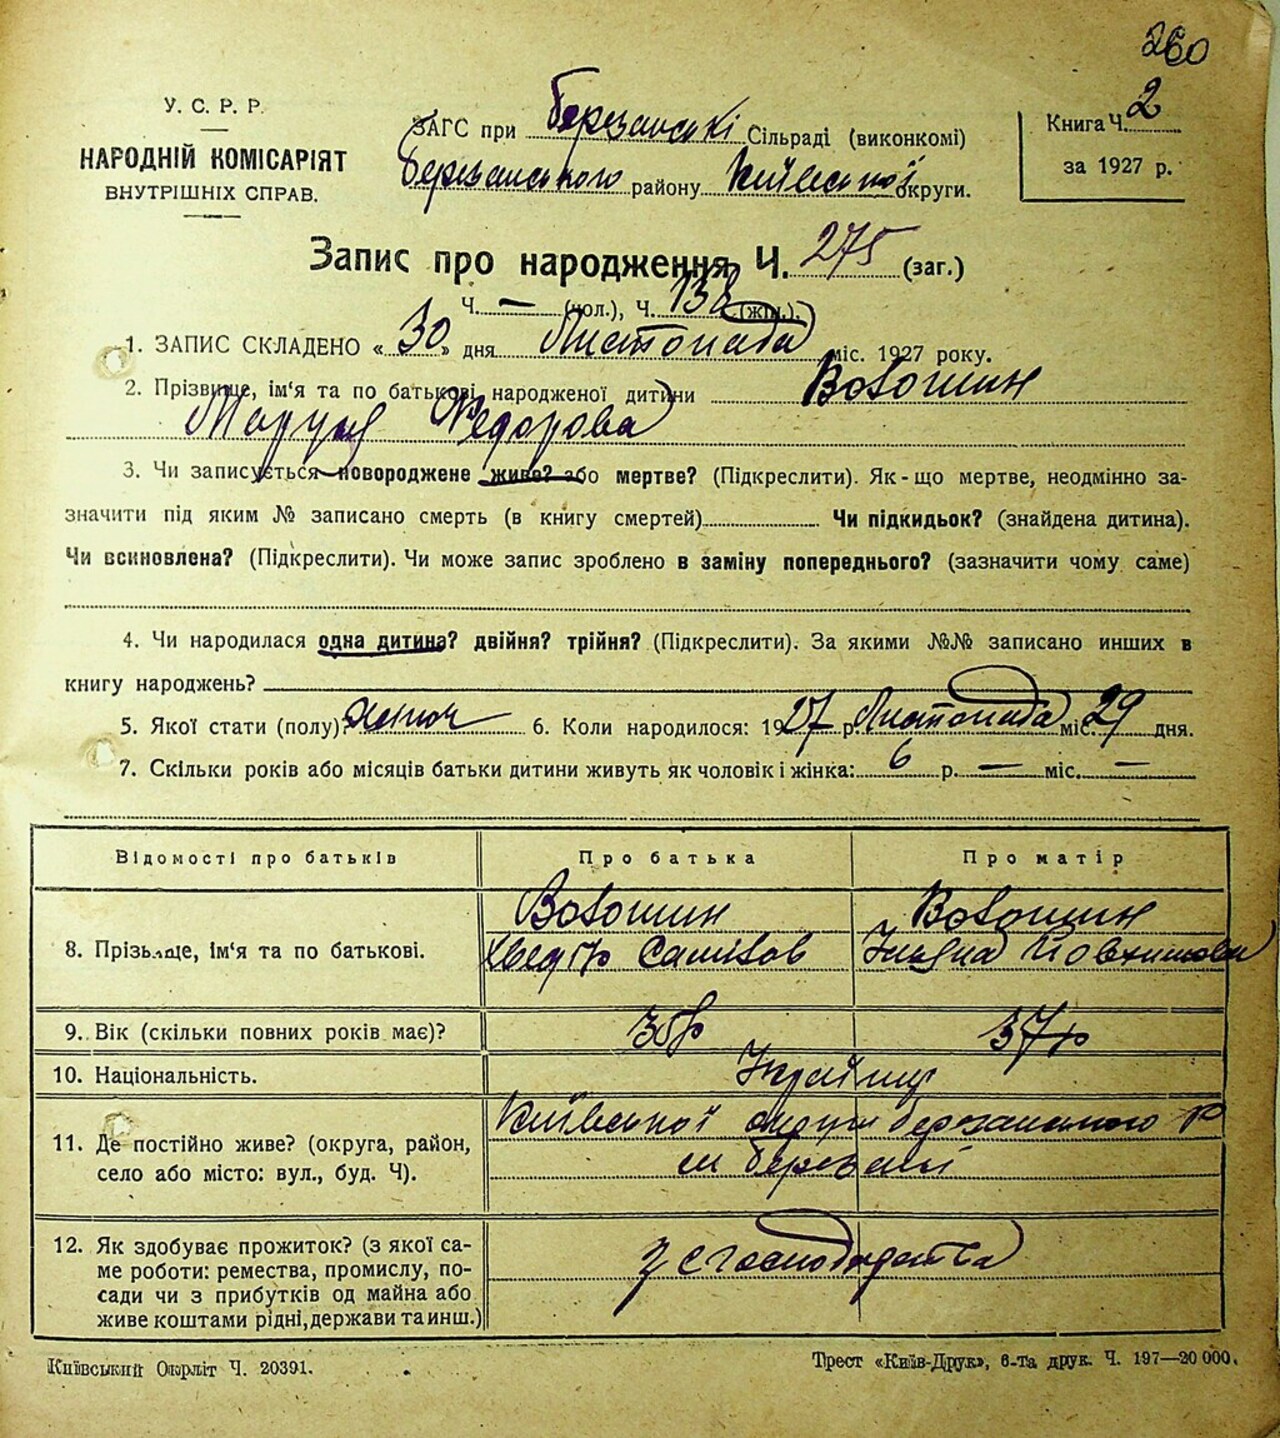 260
У. С. Р. Р.
НАРОДНІЙ КОМІСАРІЯТ
ВНУТРІШНІХ СПРАВ.
ЗАГС при Березанські Сільраді (виконкомі)
Березанського району Київської округи.
Книга Ч. 2
за 1927 р.
Запис про народження Ч. 275 (заг.)
Ч. — (чол.), Ч. 138 (жін.).
1. ЗАПИС СКЛАДЕНО «30» дня Листопада міс. 1927 року.
2. Прізвище, ім'я та по батькові народженої дитини Волошин
Маруся Федорова
3. Чи записується новороджене живе? або мертве? (Підкреслити). Як-що мертве, неодмінно за-
значити під яким № записано смерть (в книгу смертей) Чи підкидьок? (знайдена дитина).
Чи всиновлена? (Підкреслити). Чи може запис зроблено в заміну попереднього? (зазначити чому саме)
4. Чи народилася одна дитина? двійня? трійня? (Підкреслити). За якими №№ записано инших в
книгу народжень?
5. Якої стати (полу)? жіноч 6. Коли народилося: 1927 р. Листопада міс. 29 дня.
7. Скільки років або місяців батьки дитини живуть як чоловік і жінка: 6 р. — міс. —
Відомості про батьків Про батька Про матір
Волошин Волошин
8. Прізвище, ім'я та по батькові. Хведір Самілов Юхимова
9. Вік (скільки повних років має)? 37р
10. Національність. Українці
11. Де постійно живе? (округа, район, Київської округи Березанського р
село або місто: вул., буд. Ч). м Березані
12. Як здобуває прожиток? (з якої са- з с господарства
ме роботи: ремества, промислу, по-
сади чи з прибутків од майна або
живе коштами рідні, держави та инш.)
Київський Окрліт Ч. 20391.
Трест «Київ-Друк», 6-та друк. Ч. 197—20 000.